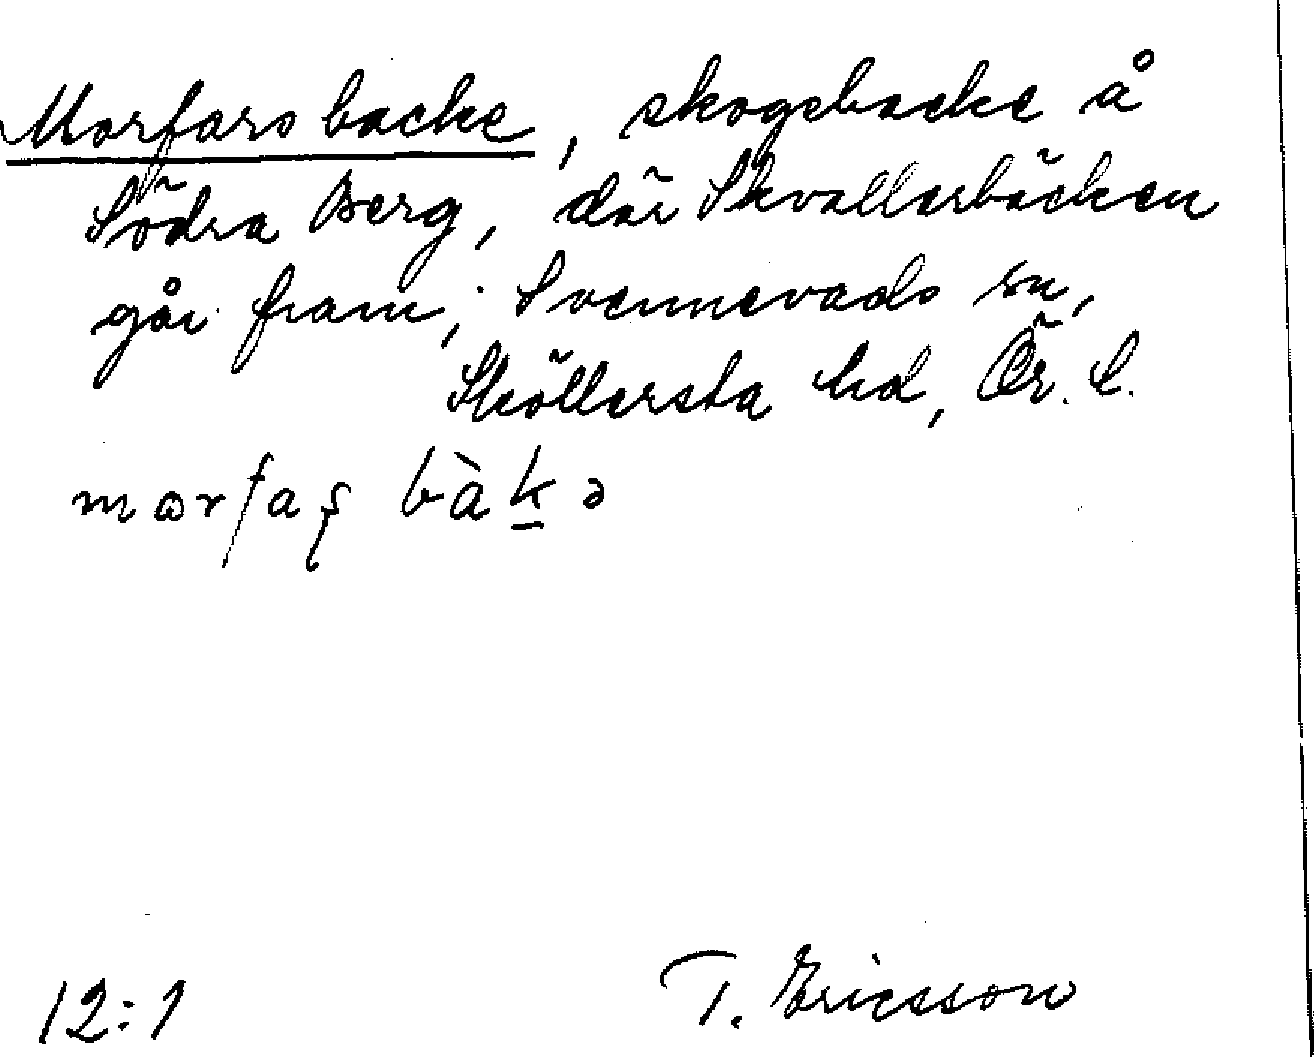 Morfars backe, skogsbacke å
Södra Berg, där Skvallerbäcken
går fram; Svennevads sn,
Sköllersta hd, Ör. l.
mɷrfaʂ bàk̲ə
12:1 T. Ericsson